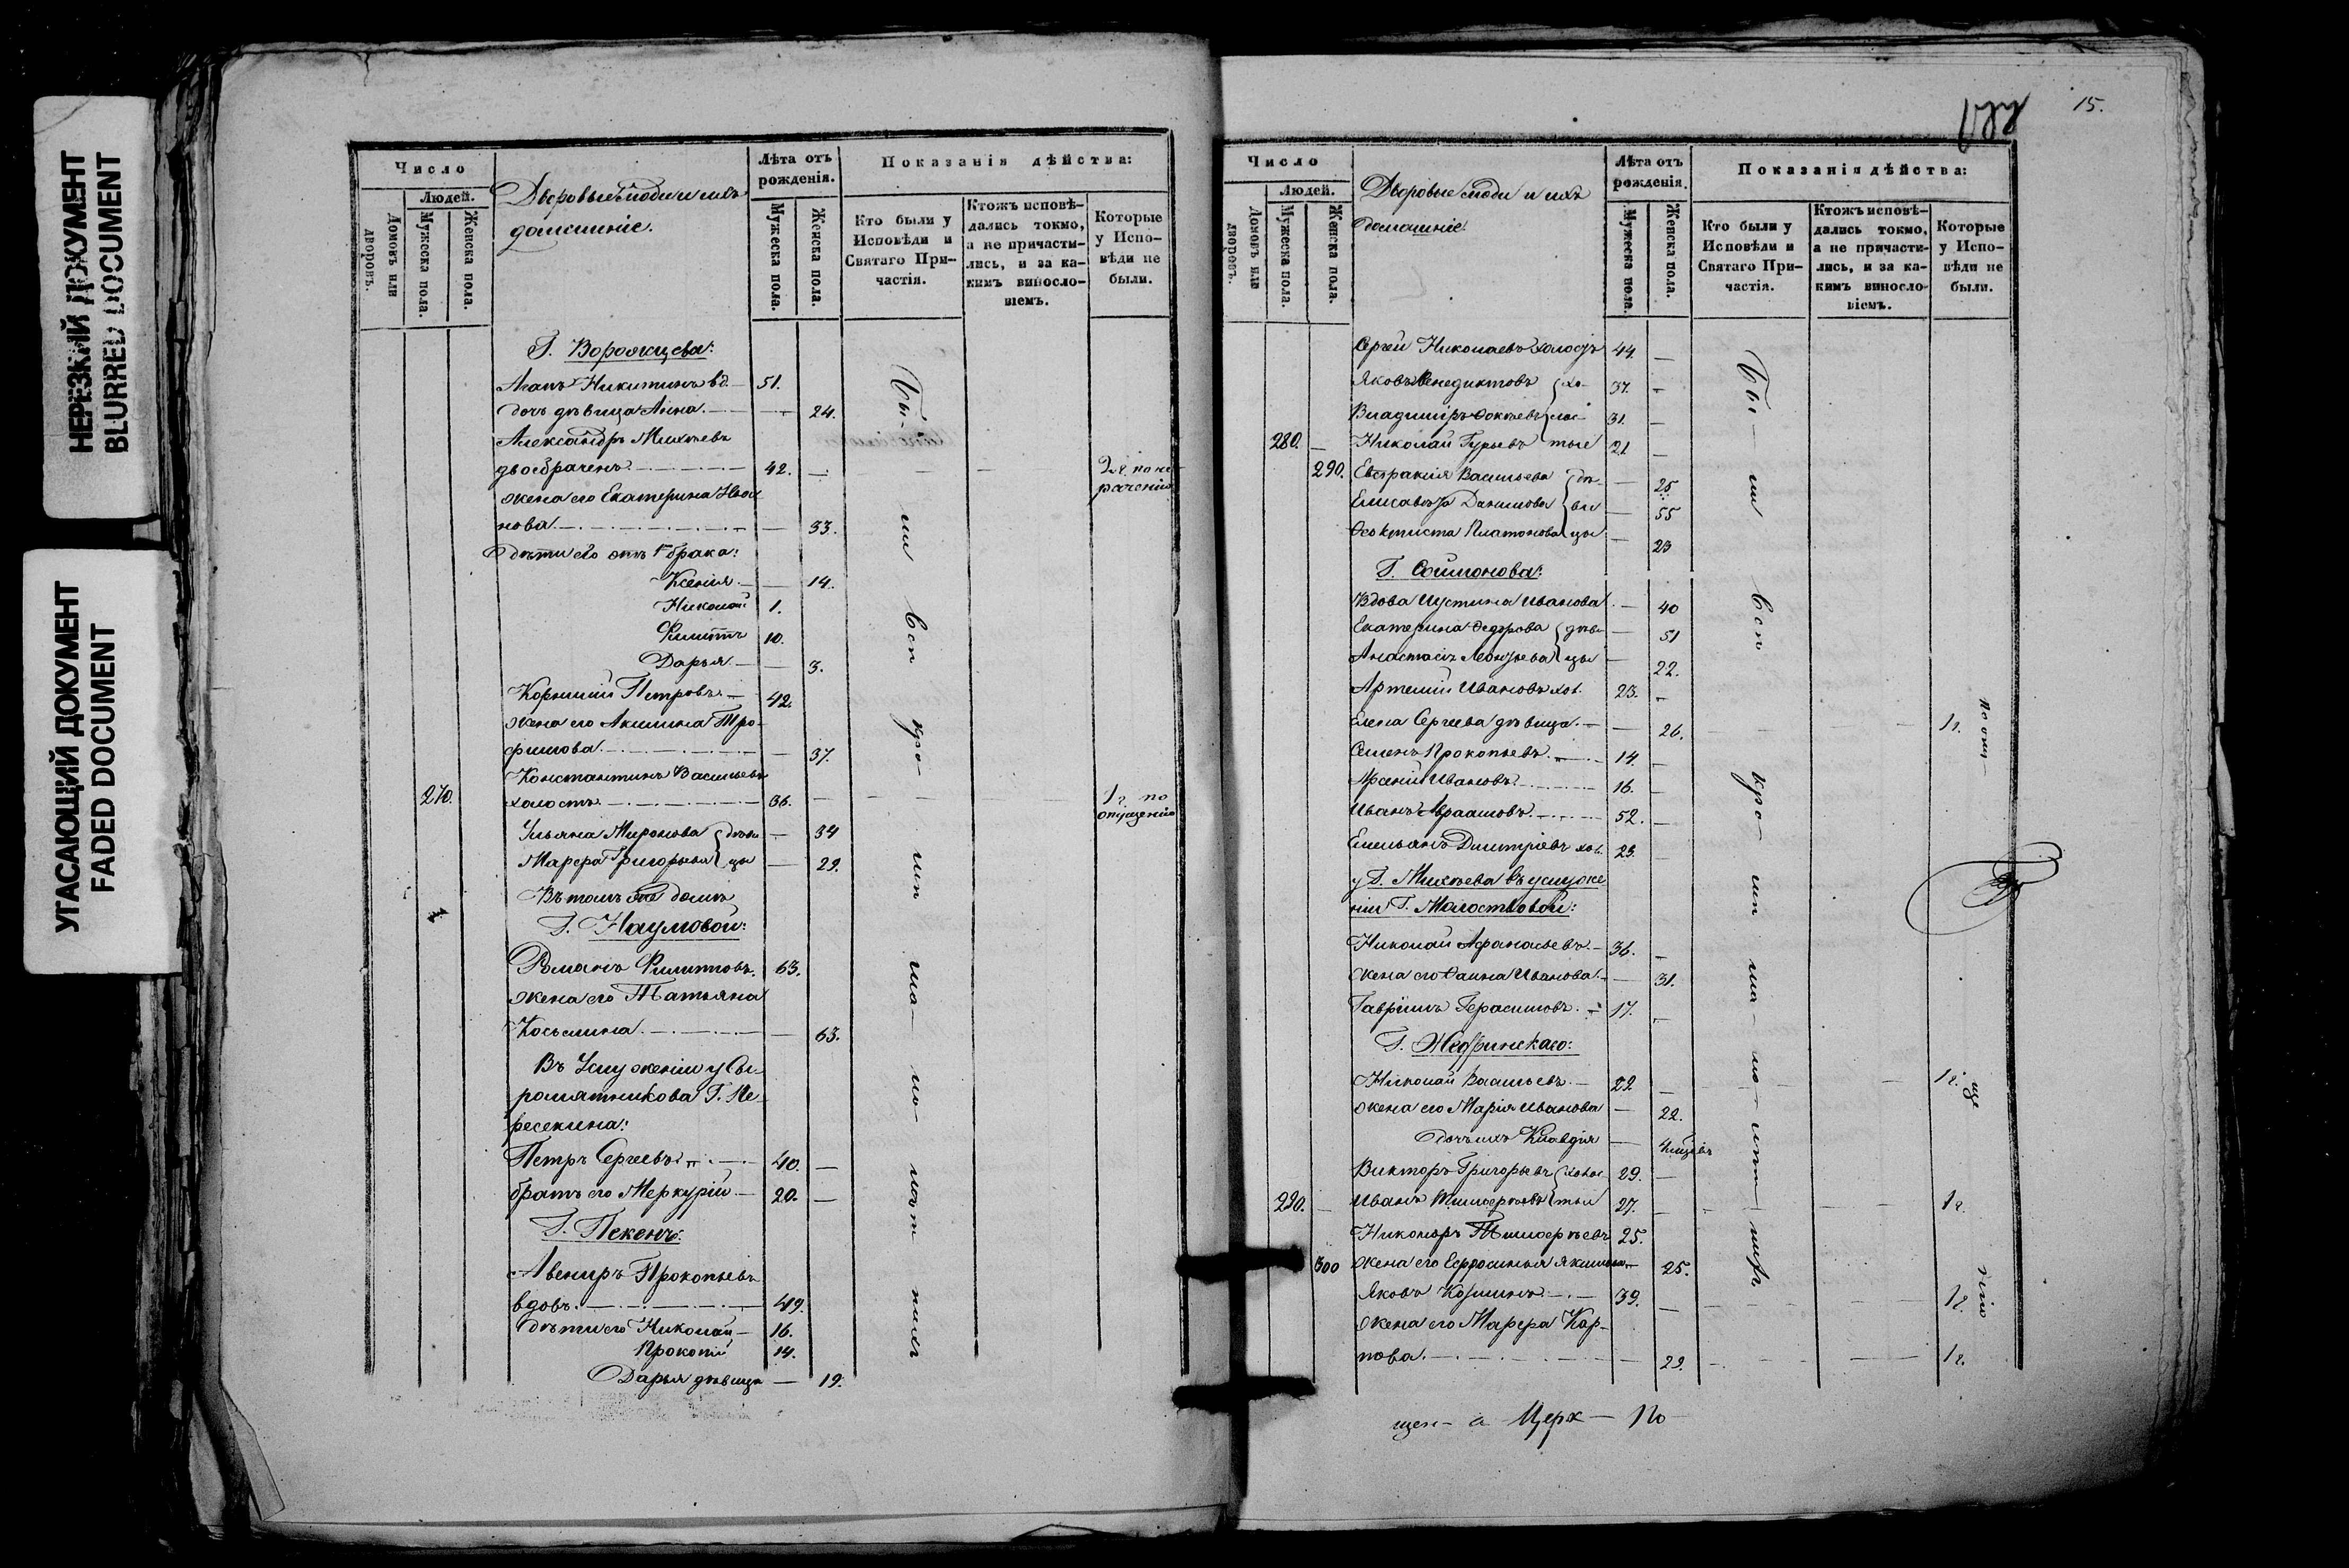 НЕРЕЗКИЙ ДОКУМЕНТ
BLURRED DOCUMENT
УГАСАЮЩИЙ ДОКУМЕНТ
FADED DOCUMENT
Число
Людей.
Домовъ или дворовъ.
Мужеска пола.
Женска пола.
Дворовые люди и ихъ
домашніе.
Лѣта отъ рожденія.
Мужеска пола.
Женска пола.
Показанія дѣйства:
Кто были у Исповѣди и Святаго Причастія.
Ктожъ исповѣдались токмо, а не причастились, и за какимъ винословіемъ.
Которые у Исповѣди не были.
Г. Воронцева:
Агапъ Никитинъ вд. — 51.
дочь дѣвица Анна. — 24.
Александръ Михѣевъ
двоебраченъ. — 42. —
жена его Екатерина Ива
нова. — 33.
Дѣти его отъ 1 брака:
Ксенія — 14.
Николай 1.
Филиппъ 10.
Дарья — 3.
Корнилій Петровъ — 42.
жена его Акилина Тро-
фимова. — 37.
Константинъ Васильевъ
270. холостъ. — 36. — 1 г. по
опущенію
Ульяна Миронова дѣви — 34
Марѳа Григорьева цы — 29.
Въ томъ же домѣ
Г. Наумовой:
Романъ Филипповъ. 63.
жена его Татьяна
Косьмина. — 63.
Въ Услуженіи у Сы-
ромятникова Г. Пе-
ресекина:
Петръ Сергеевъ. — 40. —
братъ его Меркурій — 20. —
Г. Пекенъ:
Авениръ Прокопьевъ
вдовъ. — 49.
дѣти его Николай — 16.
Прокопій 14.
Дарья дѣвица — 19.
Бы- ли вси кро- мѣ ма- ло- лѣт нихъ
15.
Число
Людей.
Домовъ или дворовъ.
Мужеска пола.
Женска пола.
Дворовые люди и ихъ
домашніе.
Лѣта отъ рожденія.
Мужеска пола.
Женска пола.
Показанія дѣйства:
Кто были у Исповѣди и Святаго Причастія.
Ктожъ исповѣдались токмо, а не причастились, и за какимъ винословіемъ.
Которые у Исповѣди не были.
Сергей Николаевъ холостъ 44. —
Яковъ Венедиктовъ хо- 37. —
Владиміръ Фокѣевъ лос- 31. —
280. — Николай Гурьевъ тые 21 —
290. Евпраксія Васильева дѣ- — 25.
Елисавета Данилова ви — 55
Ѳеоктиста Платонова цы — 23
Г. Соймонова:
Вдова Иустина Иванова — 40
Екатерина Ѳедорова дѣви — 51
Анастасія Леонтьева цы — 22.
Артемій Ивановъ хол. 23. —
Елена Сергеева дѣвица — 26. — 1 г.
Семенъ Прокопьевъ. — 14. —
Арсеній Ивановъ. — 16. —
Иванъ Авраамовъ. — 52. —
Емельянъ Дмитріевъ хол. 23. —
у Г. Михѣева въ услуже
ніи Г. Молоствовой:
Николай Афанасьевъ — 36. —
жена его Фаина Иванова — 31.
Гавріилъ Герасимовъ. — 17. —
Николай Васильевъ. — 22 — 1 г.
жена его Марія Иванова — 22.
дочь ихъ Клавдія — 4 мѣсяцъ
Викторъ Григорьевъ холос 29. —
290. — Иванъ Тимоѳеевъ тые 27. — 1 г.
Никоноръ Тимоѳеевъ 25.
300 жена его Ефросинья Якимова — 25.
Яковъ Козминъ — 39. — 1 г.
жена его Марѳа Кар-
пова. — 29. — 1 г.
Бы- ли вси кро- мѣ ма- ло- лѣт нихъ
По опу- ще нію
щен- а Церк — По